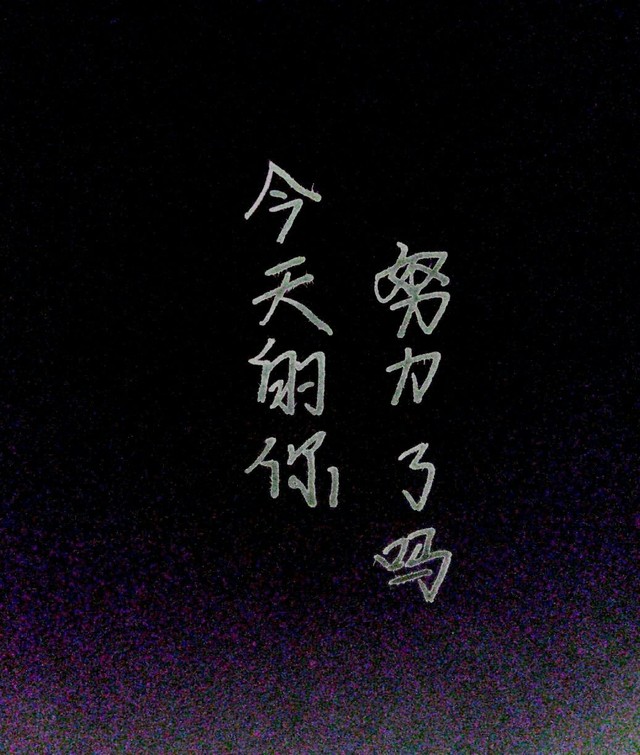 今天的你
努力了吗